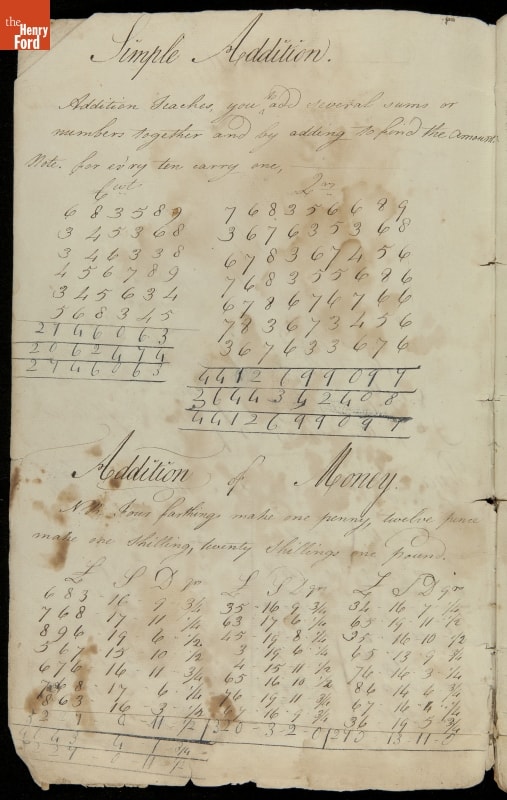 the
Henry
Ford
Simple Addition.
Addition teaches you to add several sums or
numbers together and by adding to find the amount
Note. for ev'ry ten carry one,
Cwt Qrs
6 8 3 5 8 9
3 4 5 3 6 8
3 4 6 3 3 8
4 5 6 7 8 9
3 4 5 6 3 4
5 6 8 3 4 5
2 7 4 6 0 6 3
2 0 6 2 4 7 4
2 7 4 6 0 6 3
7 6 8 3 5 6 6 8 9
3 6 7 6 3 5 3 6 8
6 7 8 3 6 7 4 5 6
7 6 8 3 5 5 6 8 6
6 7 8 6 7 6 7 6 6
7 8 3 6 7 3 4 5 6
3 6 7 6 3 3 6 7 6
4 4 1 2 6 9 9 0 9 7
3 6 4 4 3 4 2 4 0 8
4 4 1 2 6 9 9 0 9 7
Addition of Money.
NB. Four farthings make one penny, twelve pence
make one shilling, twenty shillings one pound.
£ S D qr £ S D qr £ S D qr
683 16 9 3/4 35 16 9 3/4 34 16 7 1/4
768 17 11 1/4 63 17 6 1/4 65 19 11 1/2
896 19 6 1/2 45 19 8 3/4 35 16 10 1/2
567 13 10 1/2 3 19 6 1/4 65 13 9 3/4
676 16 11 3/4 4 15 11 1/2 76 16 3 1/4
768 17 6 1/4 65 16 10 1/2 86 14 6 3/4
863 16 3 1/2 76 19 11 3/4 67 16 11 1/4
16 9 3/4 36 19 5 3/4